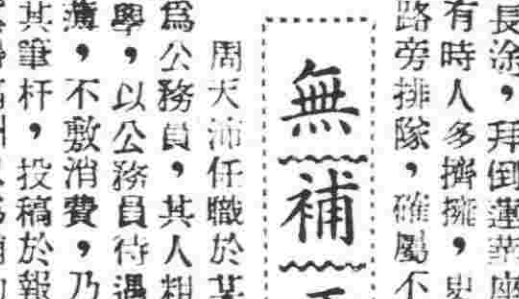 長途，拜倒蓮華座
有時人多擠擁，
路旁排隊，確屬不
無補
周天沛任職於某
為公務員，其人粗
學，以公務員待遇
薄，不敷消費，乃
其筆杆，投稿於報